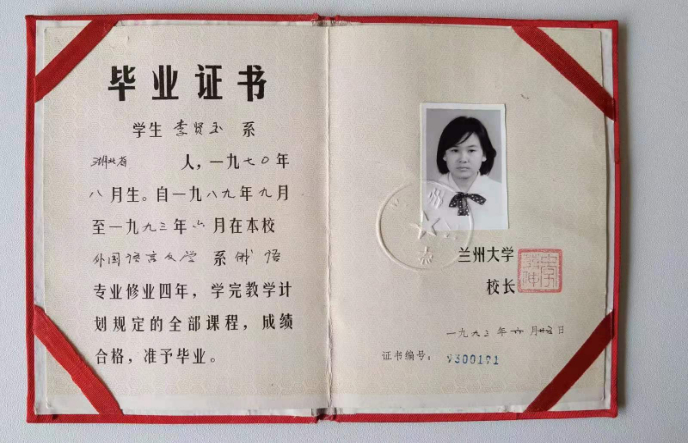 毕业证书
学生 李贤玉 系
湖北省 人，一九七〇年
八月生。自一九八九年九月
至一九九三年六月在本校
外国语言文学 系俄语
专业修业四年，学完教学计
划规定的全部课程，成绩
合格，准予毕业。
兰州大学
校长
一九九三年六月 日
证书编号：9300191